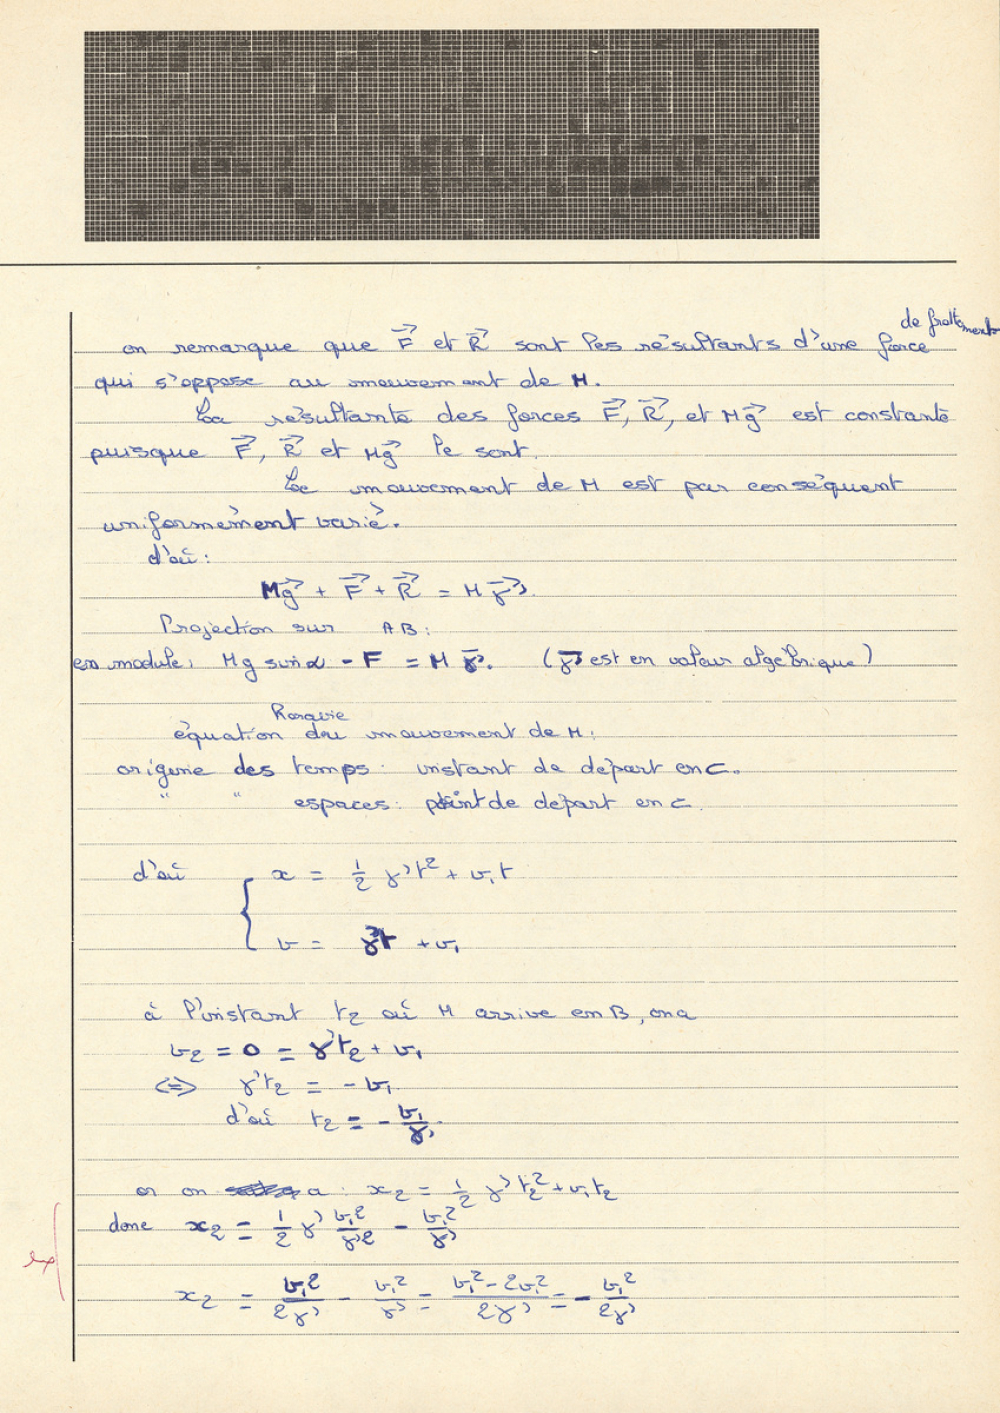 de frottements
on remarque que F⃗ et R⃗ sont les résultants d'une force
qui s'oppose au mouvement de M.
La résultante des forces F⃗, R⃗, et Mg⃗ est constante
puisque F⃗, R⃗ et Mg⃗ le sont.
Le mouvement de M est par conséquent
uniformément varié.
d'où :
Mg⃗ + F⃗ + R⃗ = M γ⃗'.
Projection sur AB :
en module : Mg sin α - F = M γ̅'. (γ̅' est en valeur algébrique)
Horaire
équation du mouvement de M :
origine des temps : instant de départ en C.
" " espaces : point de départ en C.
d'où { x = 1/2 γ't² + v₁t
v = γ't + v₁
à l'instant t₂ où M arrive en B, on a
v₂ = 0 = γ't₂ + v₁
<=> γ't₂ = - v₁
d'où t₂ = - v₁/γ'.
or on a : x₂ = 1/2 γ't₂² + v₁t₂
donc x₂ = 1/2 γ' v₁²/γ'² - v₁²/γ'
x₂ = v₁²/2γ' - v₁²/γ' = (v₁² - 2v₁²)/2γ' = - v₁²/2γ'